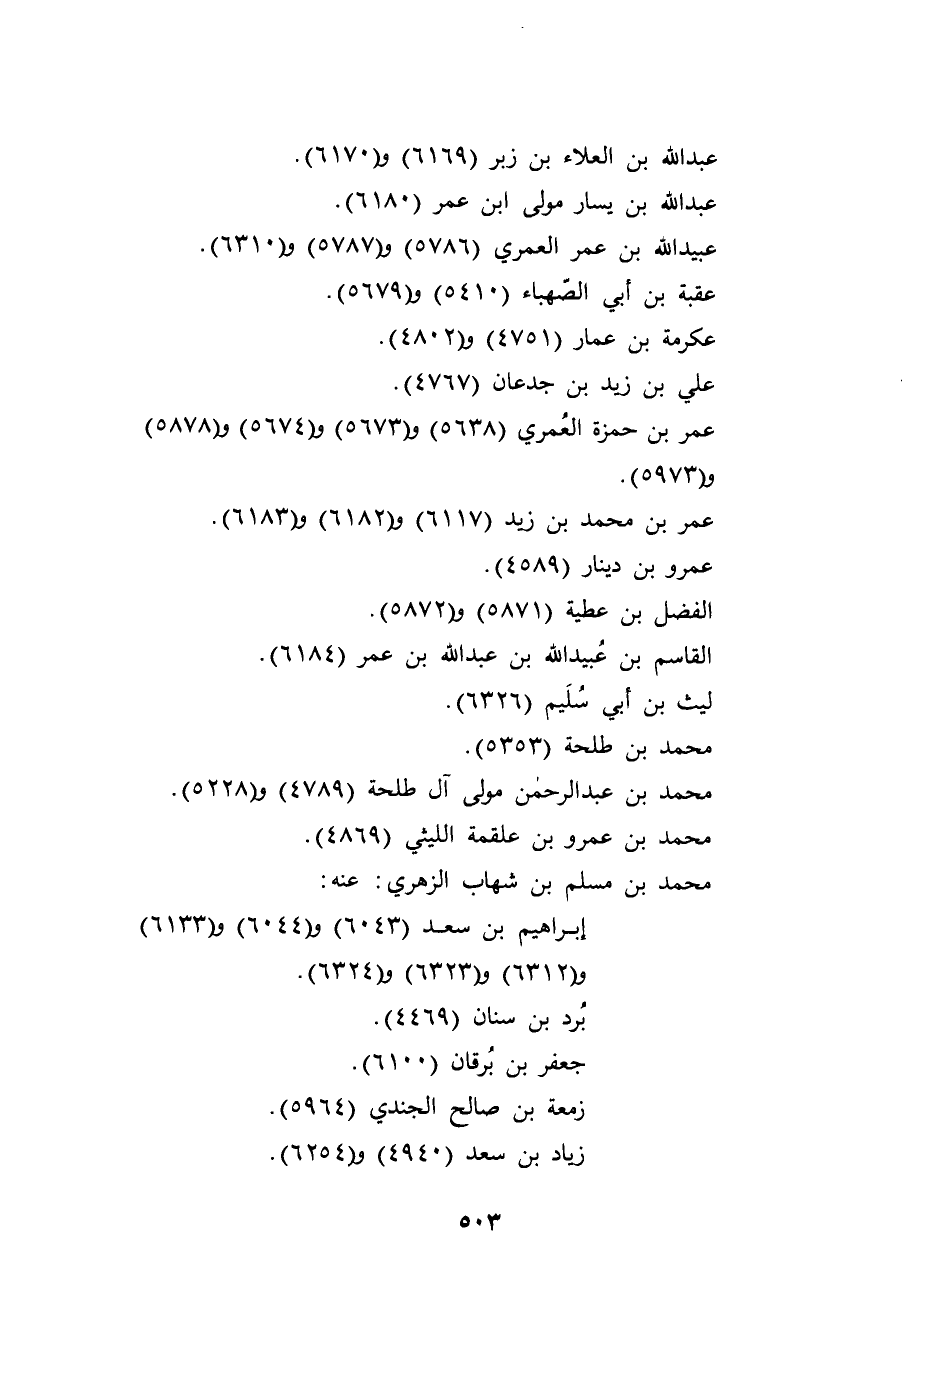 عبدالله بن العلاء بن زبر (٦١٦٩) و(٦١٧٠).
عبدالله بن يسار مولى ابن عمر (٦١٨٠).
عبيدالله بن عمر العمري (٥٧٨٦) و(٥٧٨٧) و(٦٣١٠).
عقبة بن أبي الصّهباء (٥٤١٠) و(٥٦٧٩).
عكرمة بن عمار (٤٧٥١) و(٤٨٠٢).
علي بن زيد بن جدعان (٤٧٦٧).
عمر بن حمزة العُمري (٥٦٣٨) و(٥٦٧٣) و(٥٦٧٤) و(٥٨٧٨)
و(٥٩٧٣).
عمر بن محمد بن زيد (٦١١٧) و(٦١٨٢) و(٦١٨٣).
عمرو بن دينار (٤٥٨٩).
الفضل بن عطية (٥٨٧١) و(٥٨٧٢).
القاسم بن عُبيدالله بن عبدالله بن عمر (٦١٨٤).
ليث بن أبي سُلَيم (٦٣٢٦).
محمد بن طلحة (٥٣٥٣).
محمد بن عبدالرحمٰن مولى آل طلحة (٤٧٨٩) و(٥٢٢٨).
محمد بن عمرو بن علقمة الليثي (٤٨٦٩).
محمد بن مسلم بن شهاب الزهري: عنه:
إبـراهيم بن سعـد (٦٠٤٣) و(٦٠٤٤) و(٦١٣٣)
و(٦٣١٢) و(٦٣٢٣) و(٦٣٢٤).
بُرد بن سنان (٤٤٦٩).
جعفر بن بُرقان (٦١٠٠).
زمعة بن صالح الجندي (٥٩٦٤).
زياد بن سعد (٤٩٤٠) و(٦٢٥٤).
٥٠٣